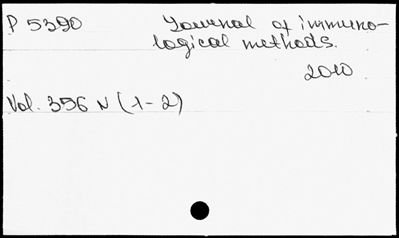 P 5390 Journal of immuno-
logical methods.
2010
Vol. 356 N (1-2)